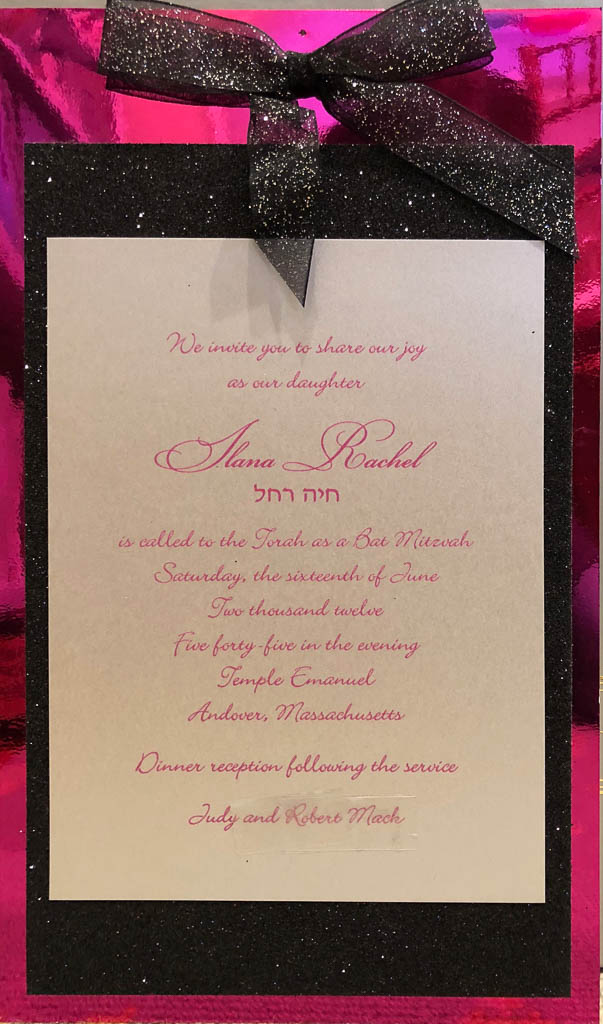 We invite you to share our joy
as our daughter
Ilana Rachel
חיה רחל
is called to the Torah as a Bat Mitzvah
Saturday, the sixteenth of June
Two thousand twelve
Five forty-five in the evening
Temple Emanuel
Andover, Massachusetts
Dinner reception following the service
Judy and Robert Mack